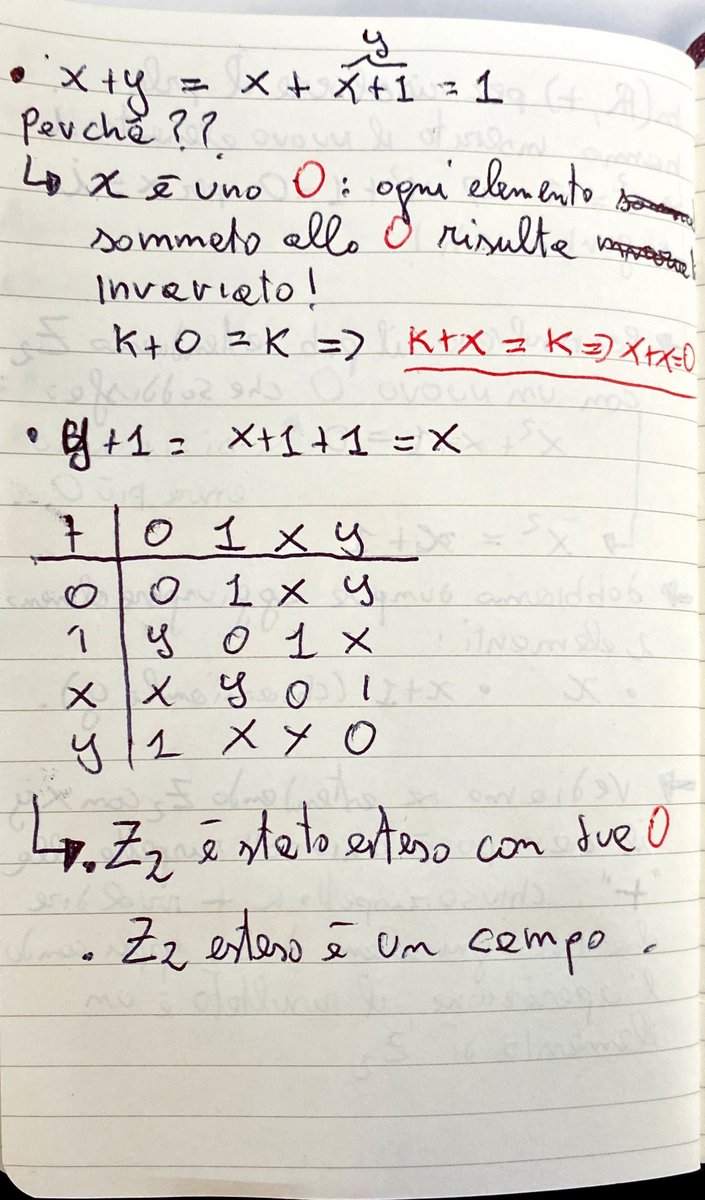 y
• x+y = x + x+1 = 1
Perchè??
↳ x è uno 0 : ogni elemento
sommato allo 0 risulta
invariato!
K+0 = K => K+x = K => x+x=0
• y+1 = x+1+1 = x
+ | 0 1 x y
0 | 0 1 x y
1 | y 0 1 x
x | x y 0 1
y | 1 x x 0
↳ . Z2 è stato esteso con due 0
. Z2 esteso è un campo .